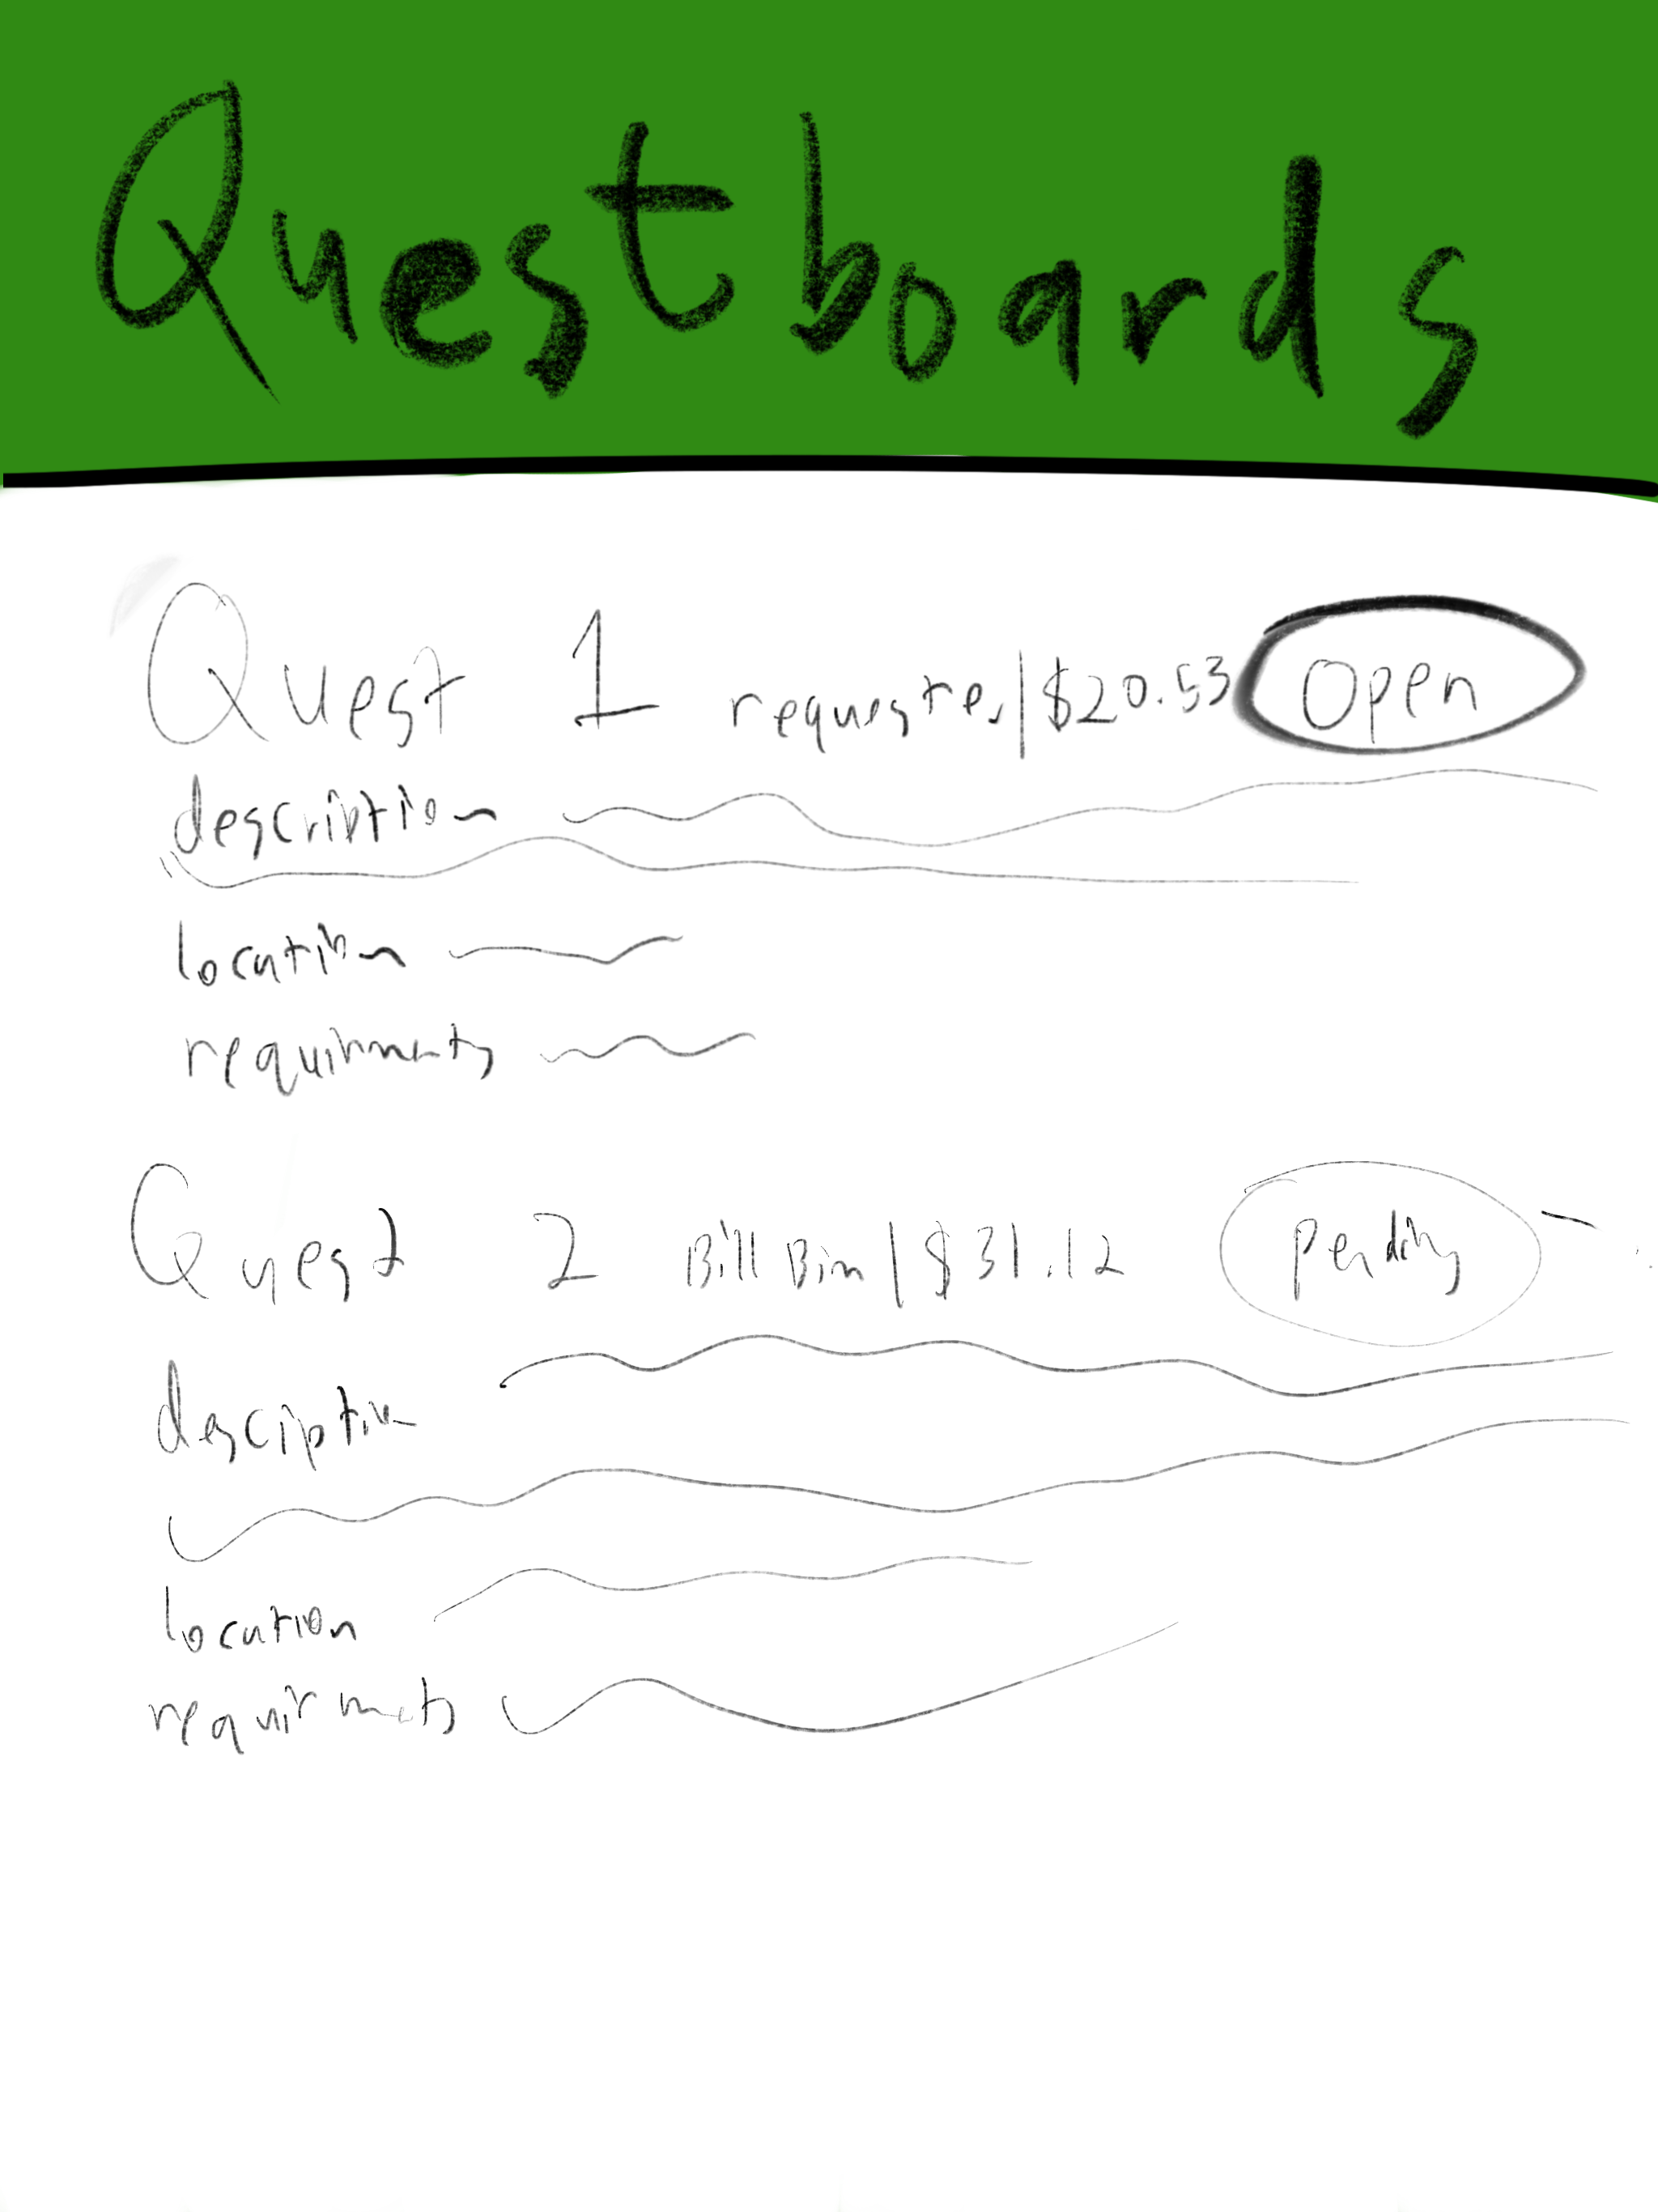 Questboards
Quest 1 requester | $20.53 Open
description
location
requirments
Quest 2 Bill Bim | $31.12 pending
desciption
location
requirments